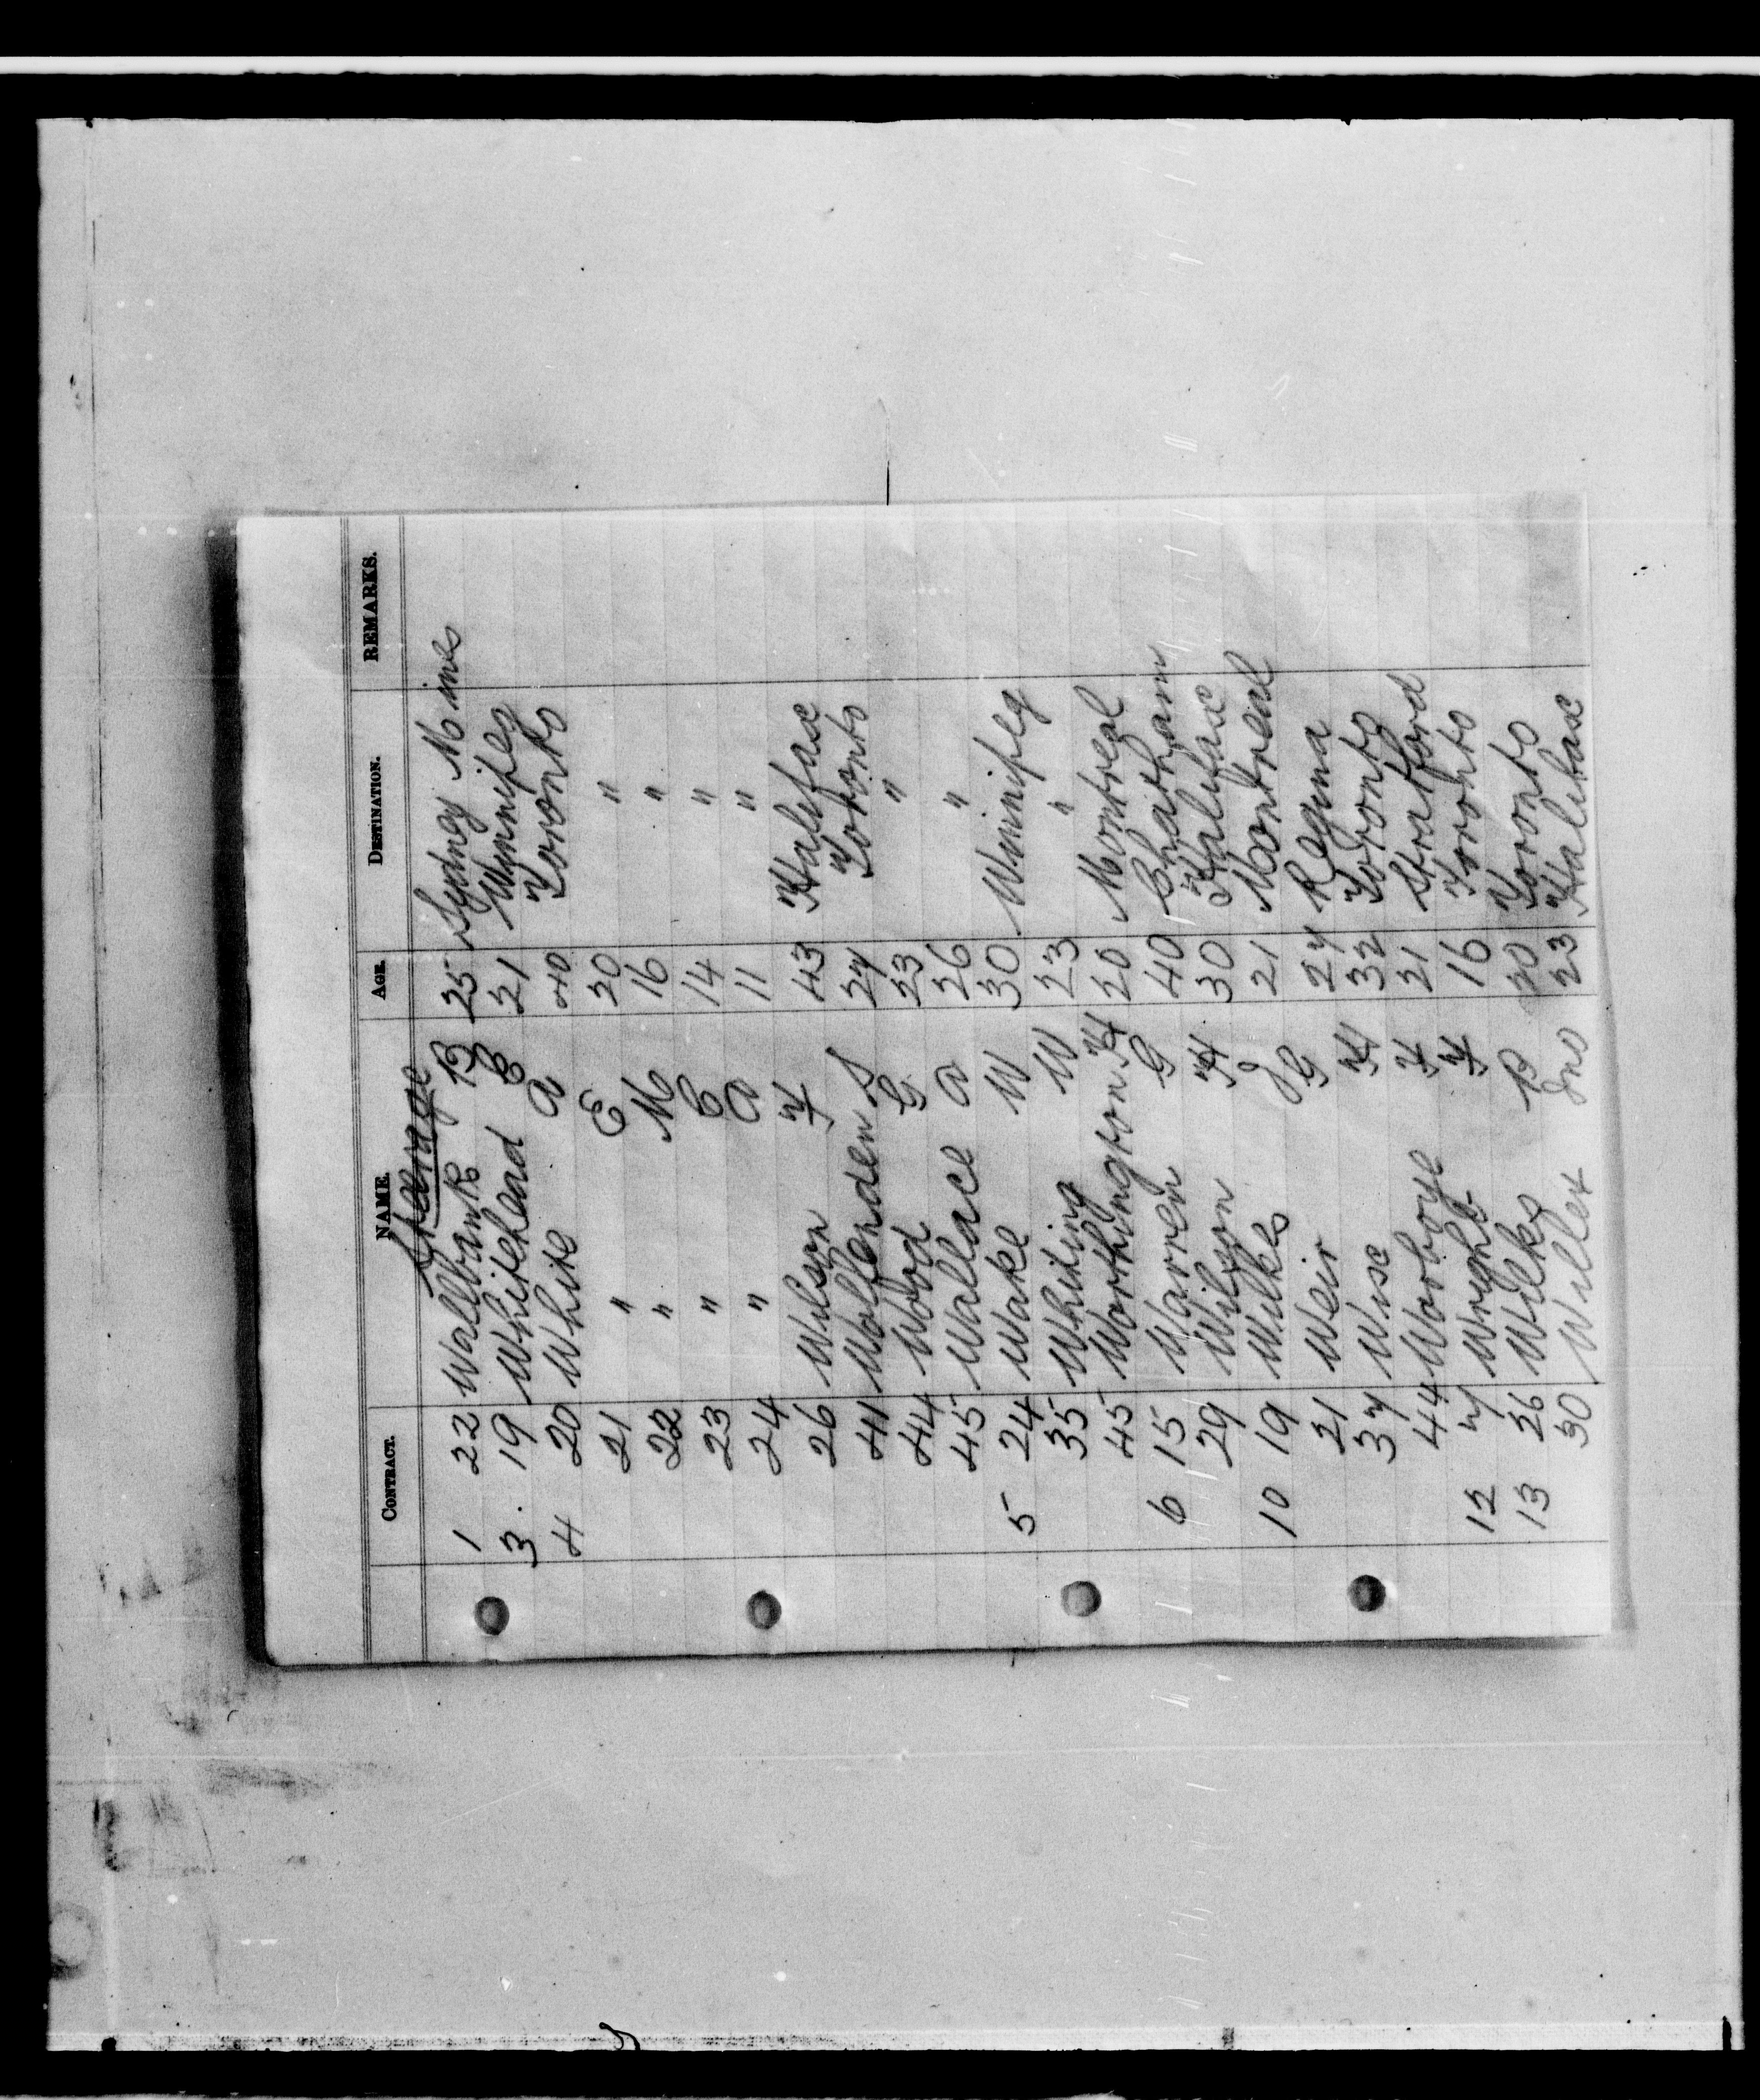 CONTRACT. NAME. AGE. DESTINATION. REMARKS.
Steerage
1 22 Wallbank B 25 Sydney Mines
3. 19 Whitehead C 21 Winnipeg
4 20 White A 40 Toronto
21 " E 20 "
22 " M 16 "
23 " C 14 "
24 " A 11 "
26 Wilson F 43 Halifax
41 Wolfenden S 27 Toronto
44 Wood G 23 "
45 Wallace A 26 "
5 24 Wake W 30 Winnipeg
35 Whiting W 23 "
45 Worthington H 20 Montreal
6 15 Warren G 40 Chatham
29 Wilson H 30 Halifax
10 19 Wilkes J 21 Montreal
21 Weir G 27 Regina
37 Wise H 32 Toronto
44 Worboye F 21 Stratford
12 7 Wright F 16 Toronto
13 26 Wilks B 20 Toronto
30 Willet Jno 23 Halifax